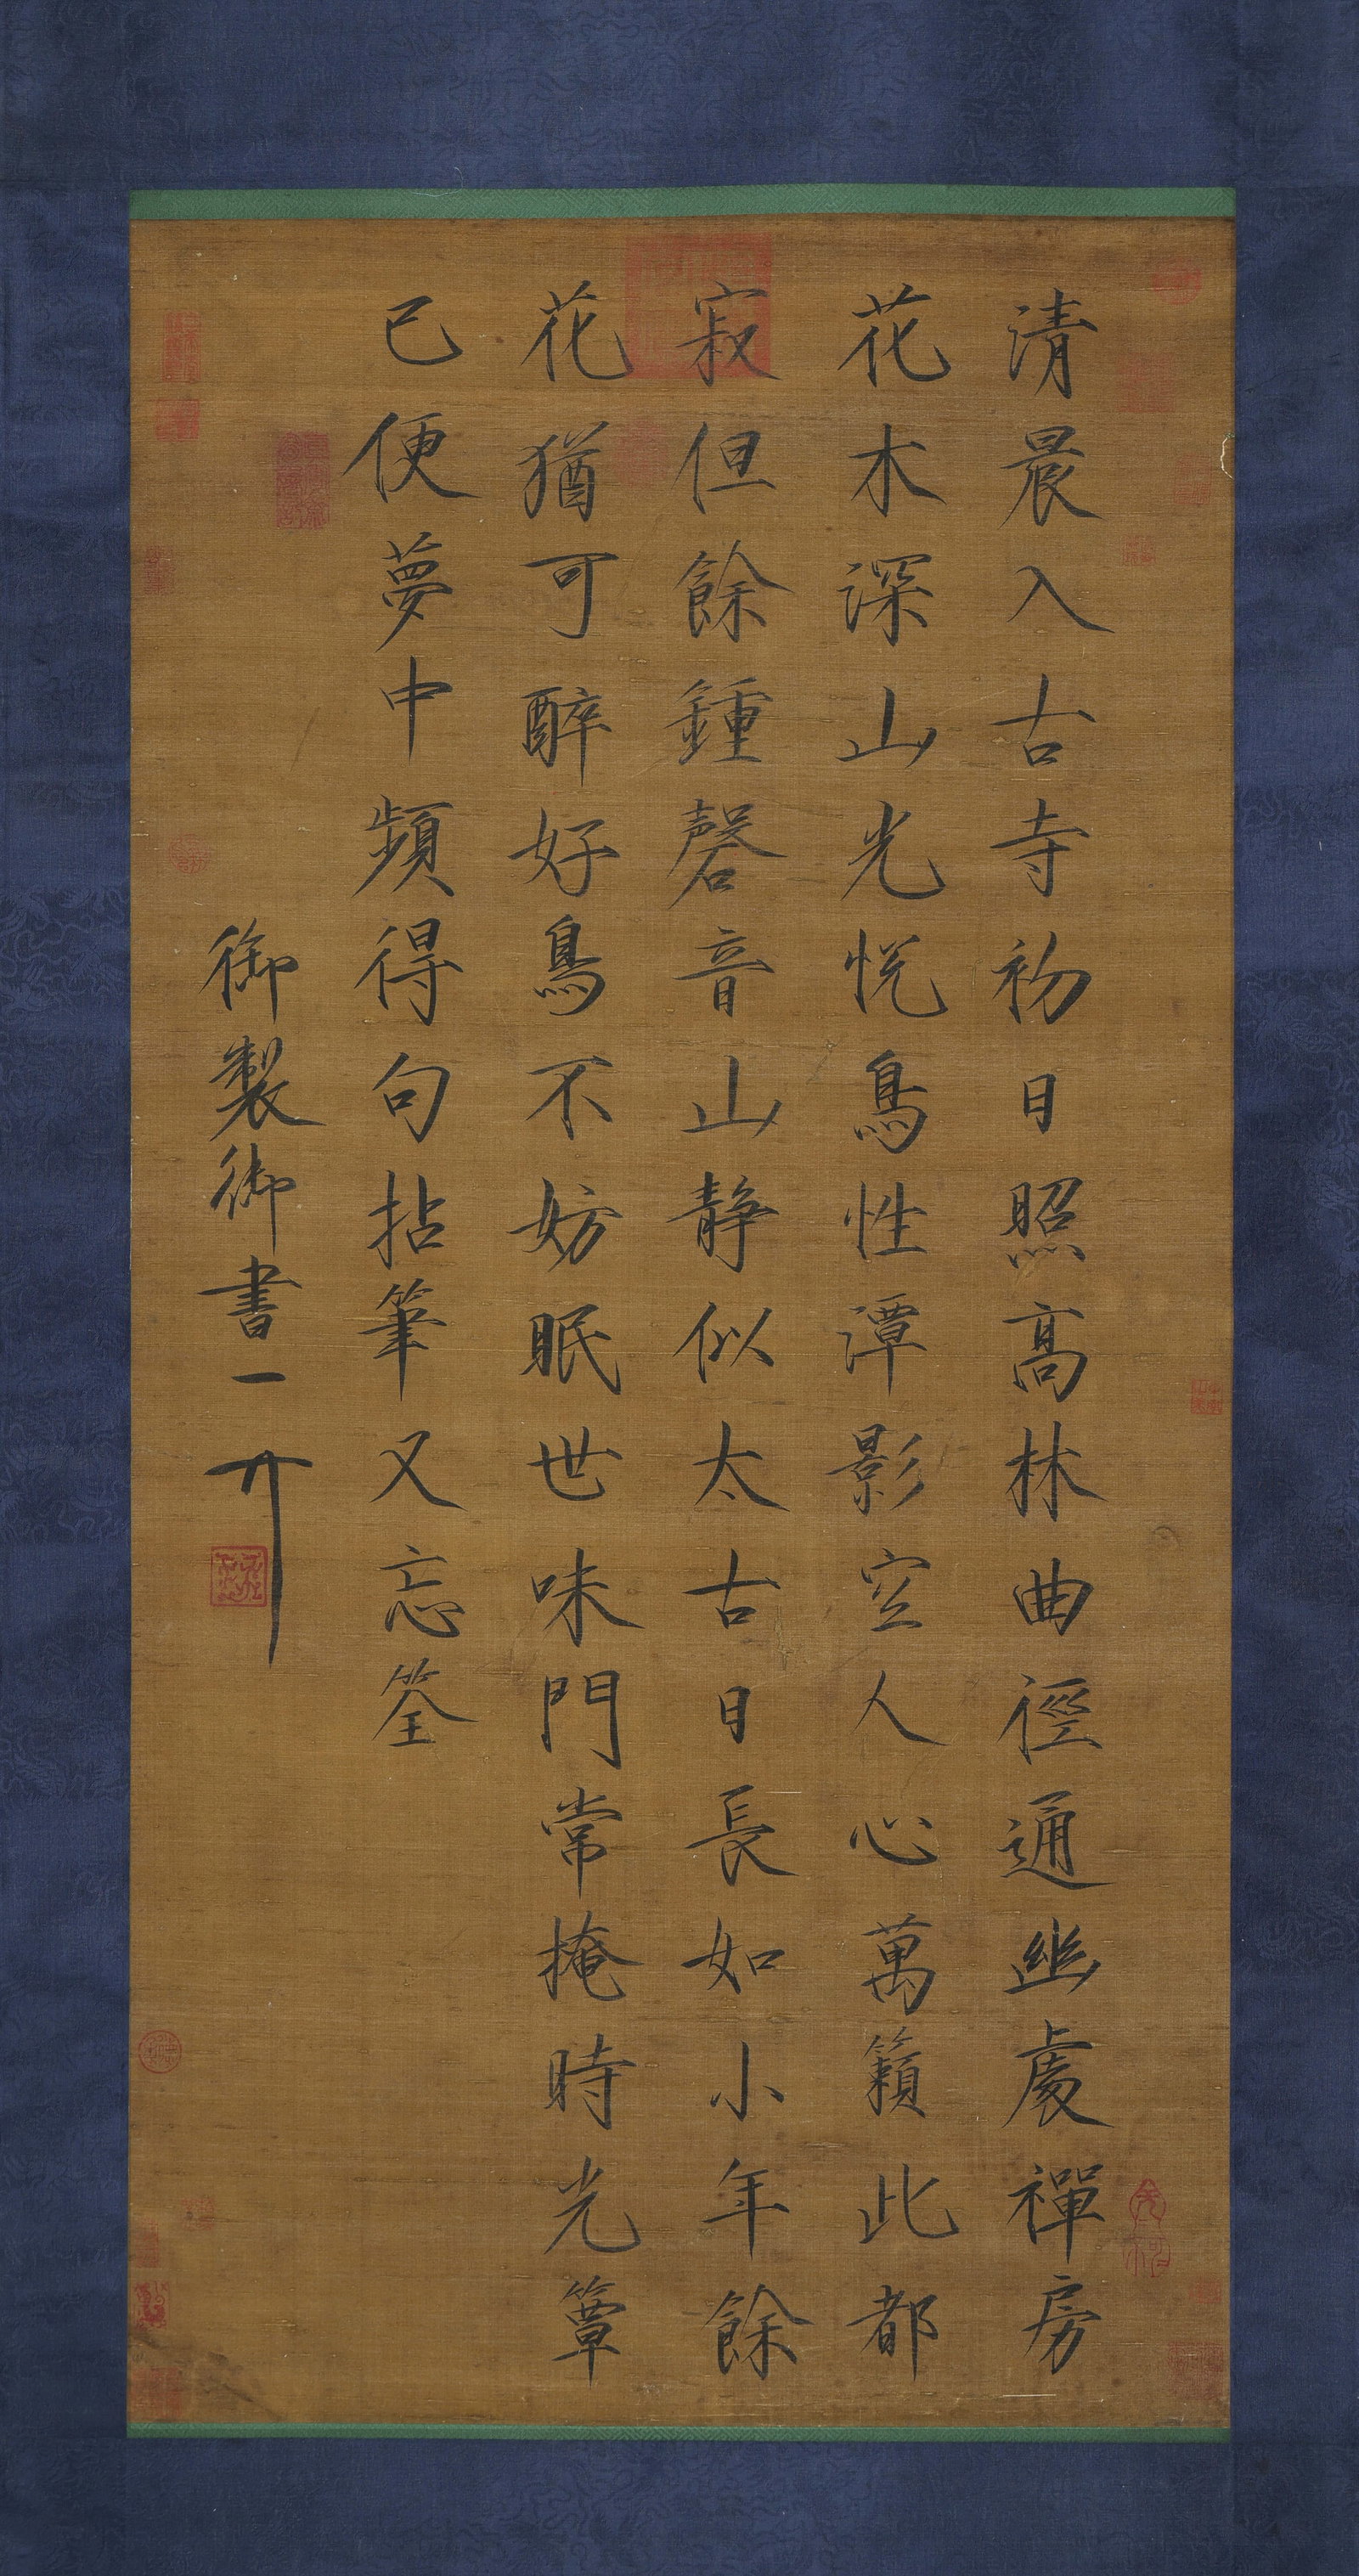 清晨入古寺初日照高林曲徑通幽處禪房
花木深山光恱鳥性潭影空人心萬籟此都
寂但餘鍾磬音山靜似太古日長如小年餘
花猶可醉好鳥不妨眠世味門常掩時光簟
已便夢中頻得句拈筆又忘筌
御製御書一